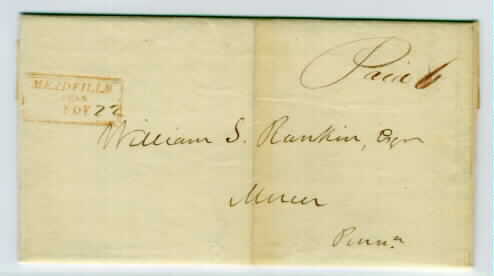 Paid 6
MEADVILLE
NOV 22
William S. Rankin, Esqr
Mercer
Penna